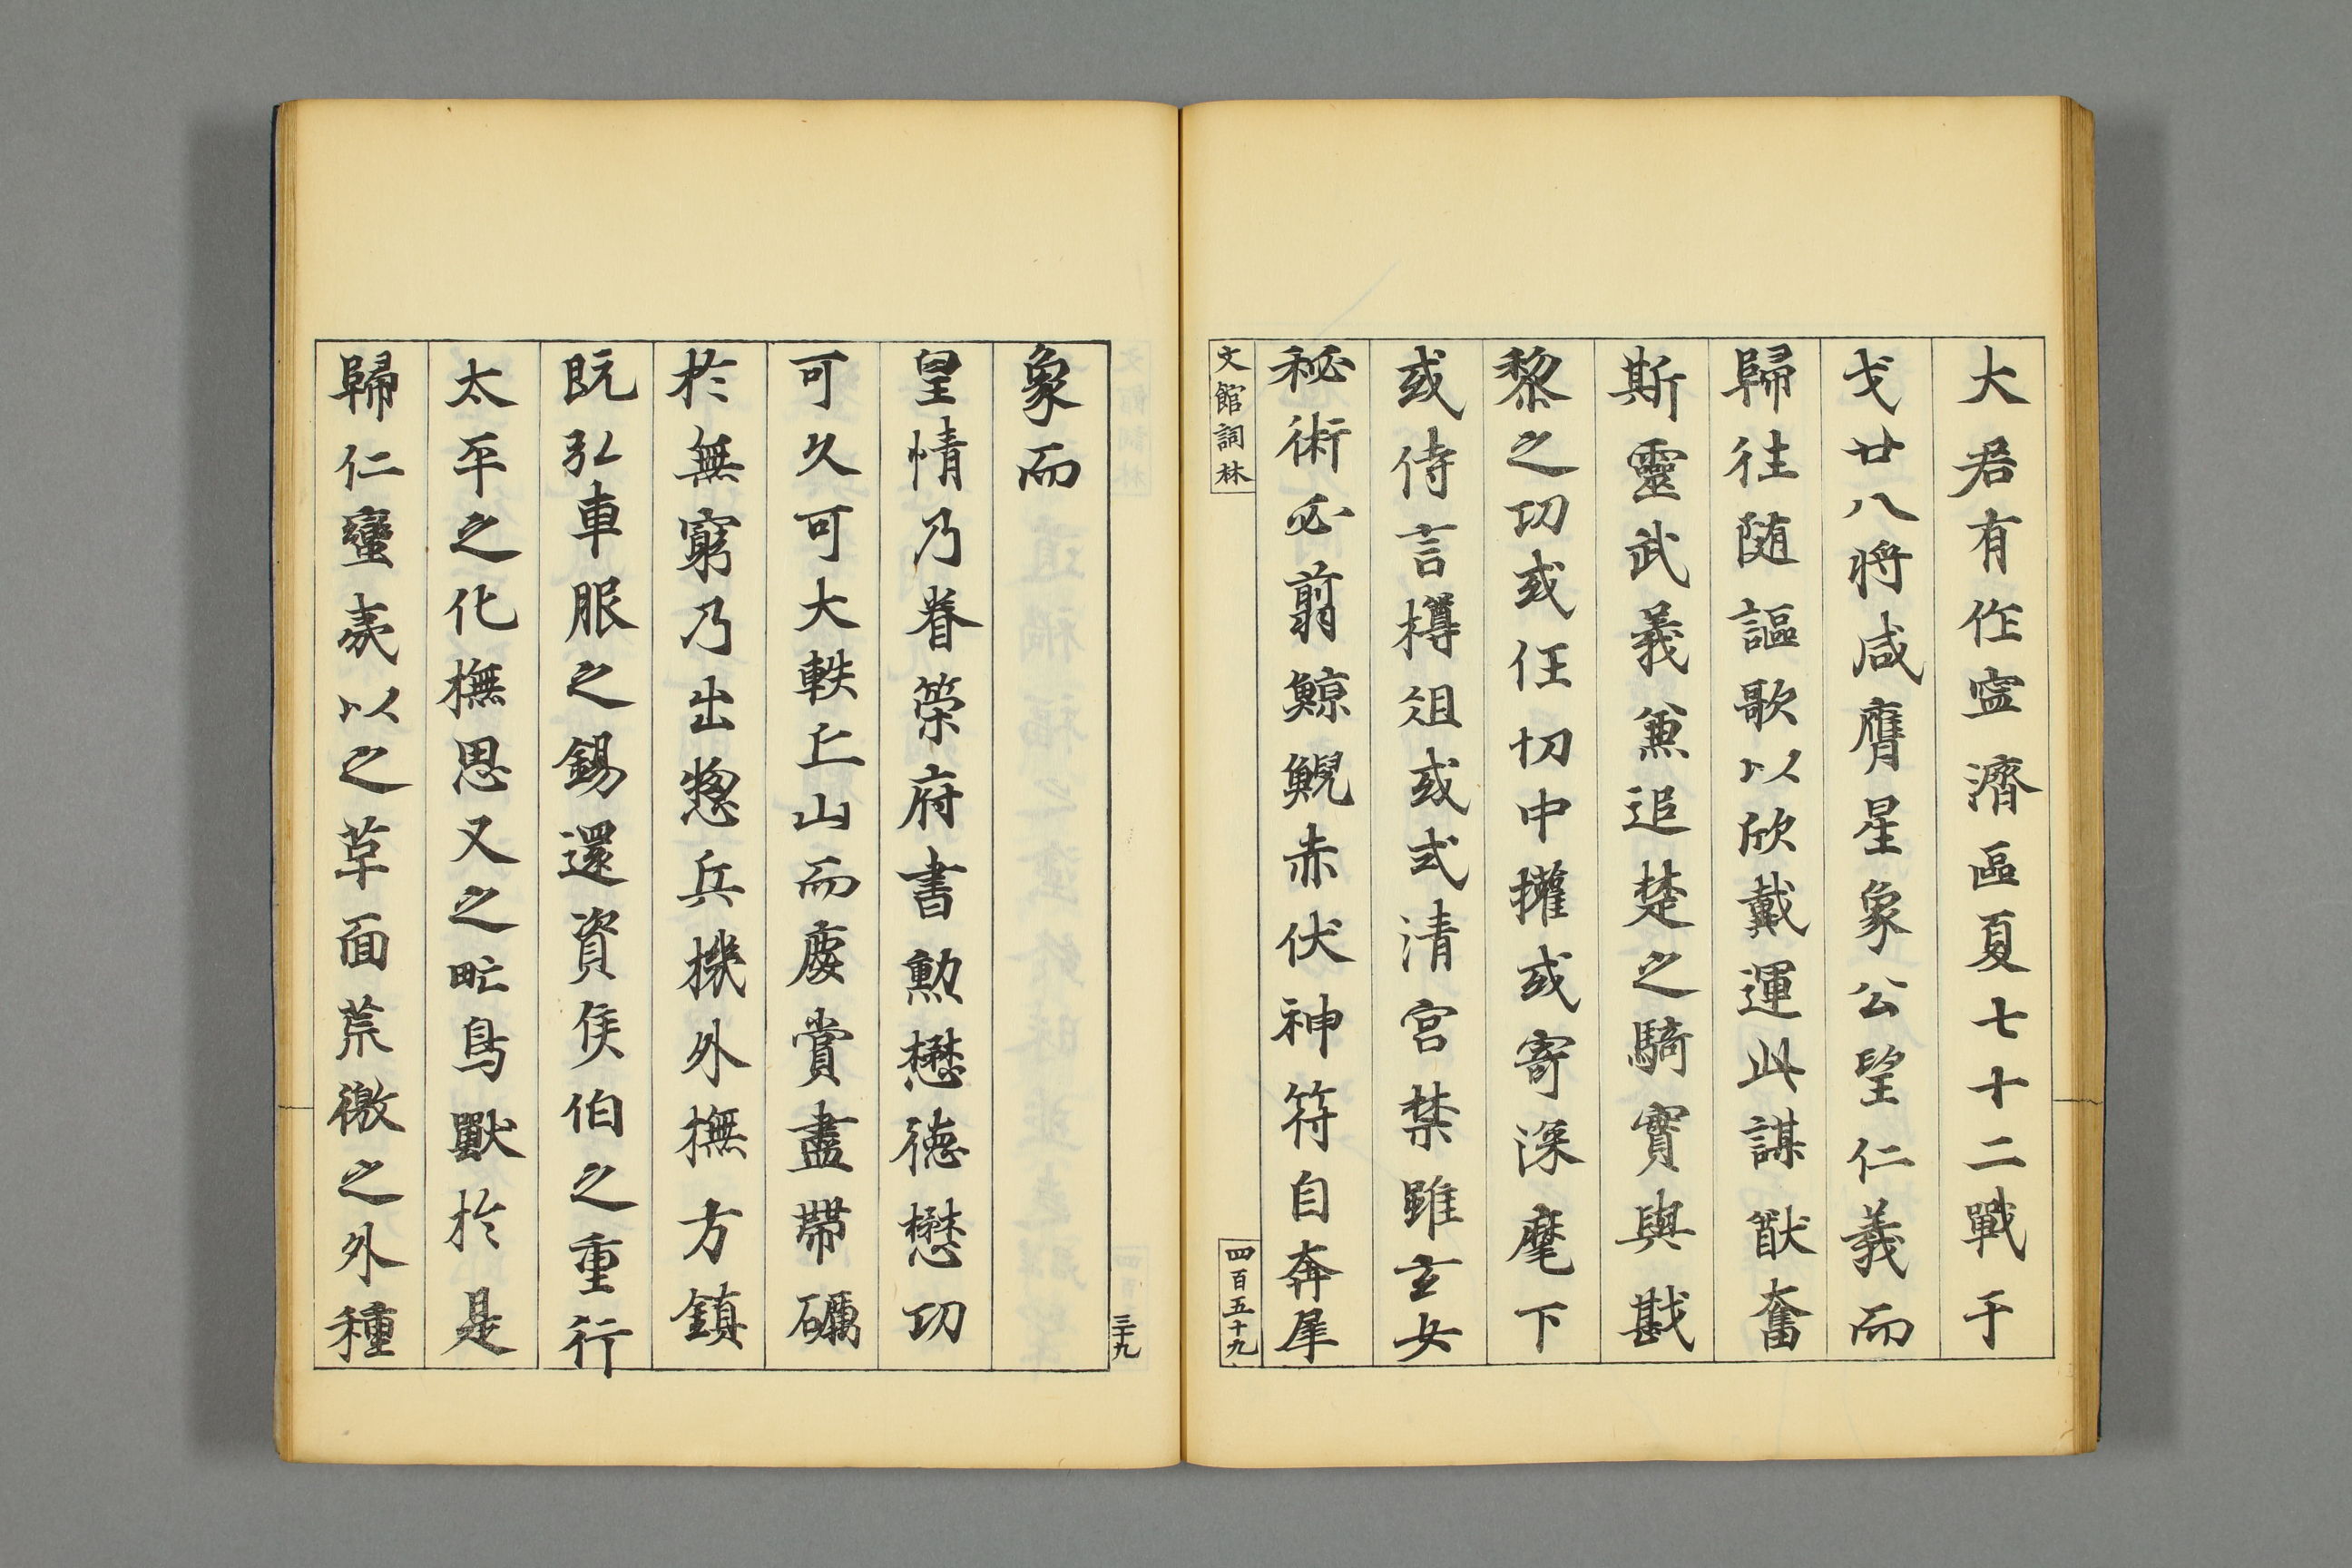 大君有作寍濟區夏七十二戰于
戈廿八將咸膺星象公望仁義而
歸往随謳歌以欣戴運此謀猷奮
斯靈武義兼追楚之騎實與戡
黎之功或任切中攉或寄深麾下
或侍言樽俎或式清宫禁雖玄女
秘術必翦鯨鯢赤伏神符自奔犀
文館詞林
四百五十九
象而
皇情乃眷策府書勲懋德懋功
可久可大軼丘山而慶賞盡帶礪
於無窮乃出惣兵機外撫方鎮
既弘車服之錫還資侯伯之重行
太平之化撫思乂之甿鳥獸於是
歸仁蠻夷以之草面荒徼之外種
三十九